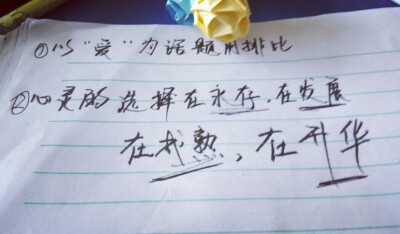 ①以“爱”为话题用排比
②心灵的选择在永存,在发展
在成熟,在升华